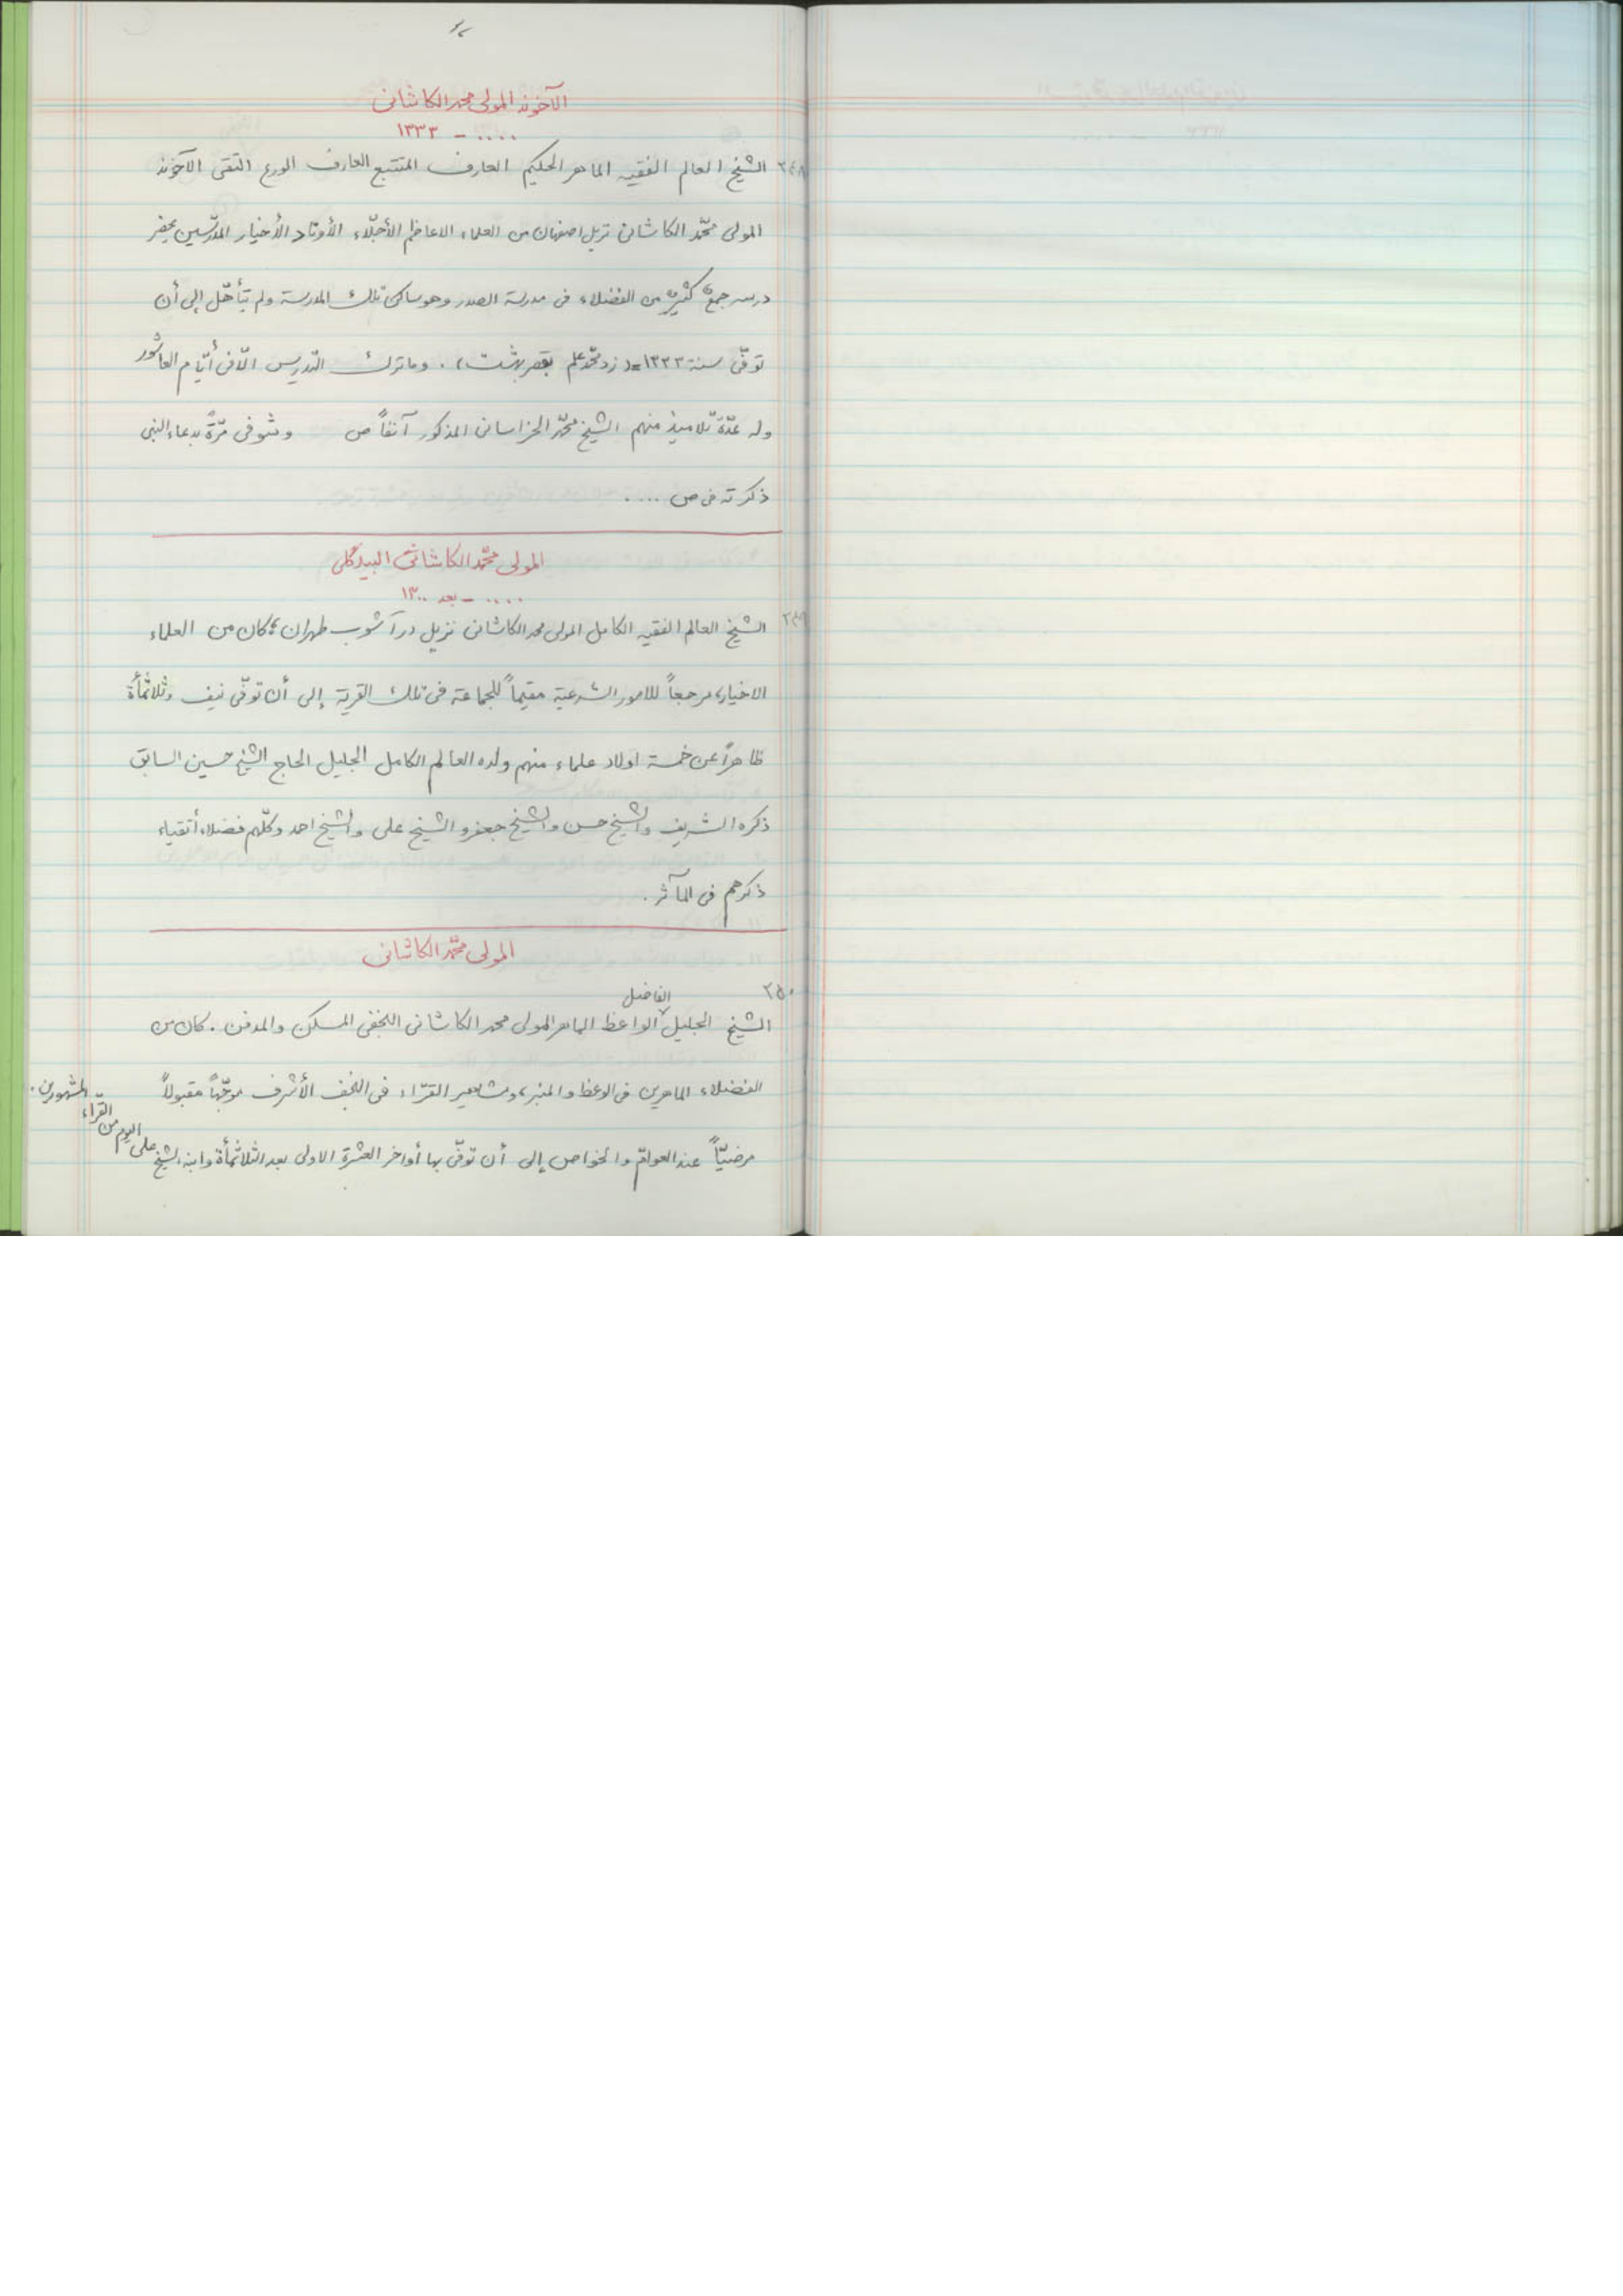 الآخوند المولى محمد الكاشانى
.... - ١٣٣٣
٢٤٨ الشيخ العالم الفقيه الماهر الحكيم العارف المتتبع العارف الورع التقى الآخوند
المولى محمّد الكاشانى نزيل اصفهان من العلماء الاعاظم الأجلّاء الأوتاد الأخيار المدرّسين يحضر
درسه جمعٌ كثيرٌ من الفضلاء فى مدرسة الصدر وهو ساكن تلك المدرسة ولم يتأهّل إلى أن
توفّى سنة ١٣٣٣ = ( زد محمّد علم بقصر بهشت ) . وما ترك التّدريس الّا فى أيّام العاشور
وله عدّة تلاميذ منهم الشيخ محمّد الخراسانى المذكور آنفاً ص وشوفى مرّةً بدعاء النبى
ذكرته فى ص ....
المولى محمّد الكاشانى البيدگلى
.... - بعد ١٣٠٠
٢٤٩ الشيخ العالم الفقيه الكامل المولى محمد الكاشانى نزيل درآشوب طهران، كان من العلماء
الاخيار، مرجعاً للامور الشرعية مقيماً للجماعة فى تلك القرية إلى أن توفّى نيف وثلاثمأة
ظاهراً عن خمسة اولاد علماء منهم ولده العالم الكامل الجليل الحاج الشيخ حسين السابق
ذكره الشريف والشيخ حسن والشيخ جعفر و الشيخ على والشيخ احمد وكلّهم فضلاء أتقياء
ذكرهم فى المآثر .
المولى محمّد الكاشانى
٢٥٠ الفاضل
الشيخ الجليل الواعظ الماهر المولى محمد الكاشانى النجفى المسكن والمدفن . كان من
الفضلاء الماهرين فى الوعظ والمنبر، ومشاهير القرّاء فى النجف الأشرف موجّهاً مقبولاً
مرضيّاً عند العوامّ والخواص إلى أن توفّى بها أواخر العشرة الاولى بعد الثلاثمأة وابنه الشيخ على اليوم من القرّاء المشهورين .